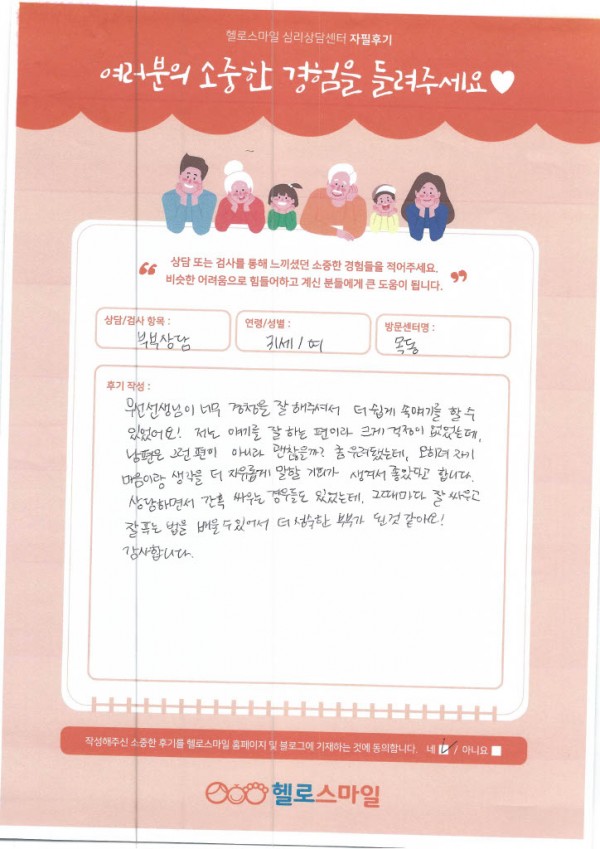 헬로스마일 심리상담센터 자필후기
여러분의 소중한 경험을 들려주세요
상담 또는 검사를 통해 느끼셨던 소중한 경험들을 적어주세요.
비슷한 어려움으로 힘들어하고 계신 분들에게 큰 도움이 됩니다.
상담/검사 항목 :
부부상담
연령/성별 :
31세 / 여
방문센터명 :
목동
후기 작성 :
우선 선생님이 너무 경청을 잘 해주셔서 더 쉽게 속얘기를 할 수
있었어요! 저는 얘기를 잘 하는 편이라 크게 걱정이 없었는데,
남편은 그런 편이 아니라 괜찮을까? 좀 우려됐었는데, 오히려 자기
마음이랑 생각을 더 자유롭게 말할 기회가 생겨서 좋았다고 합니다.
상담하면서 간혹 싸우는 경우들도 있었는데, 그때마다 잘 싸우고
잘 푸는 법을 배울 수 있어서 더 성숙한 부부가 된 것 같아요!
감사합니다.
작성해주신 소중한 후기를 헬로스마일 홈페이지 및 블로그에 기재하는 것에 동의합니다. 네 / 아니요
헬로스마일